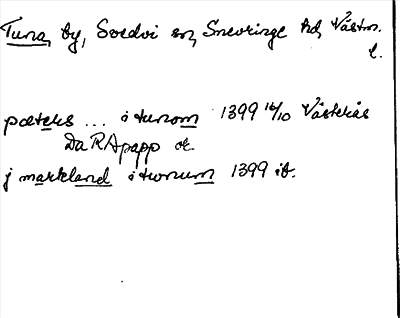 Tuna, by, Svedvi sn, Snevringe hd, Västm.
l.
pæteks ... i tunom 1399 16/10 Västerås
Da RA papp or.
j markland i twnum 1399 ib.